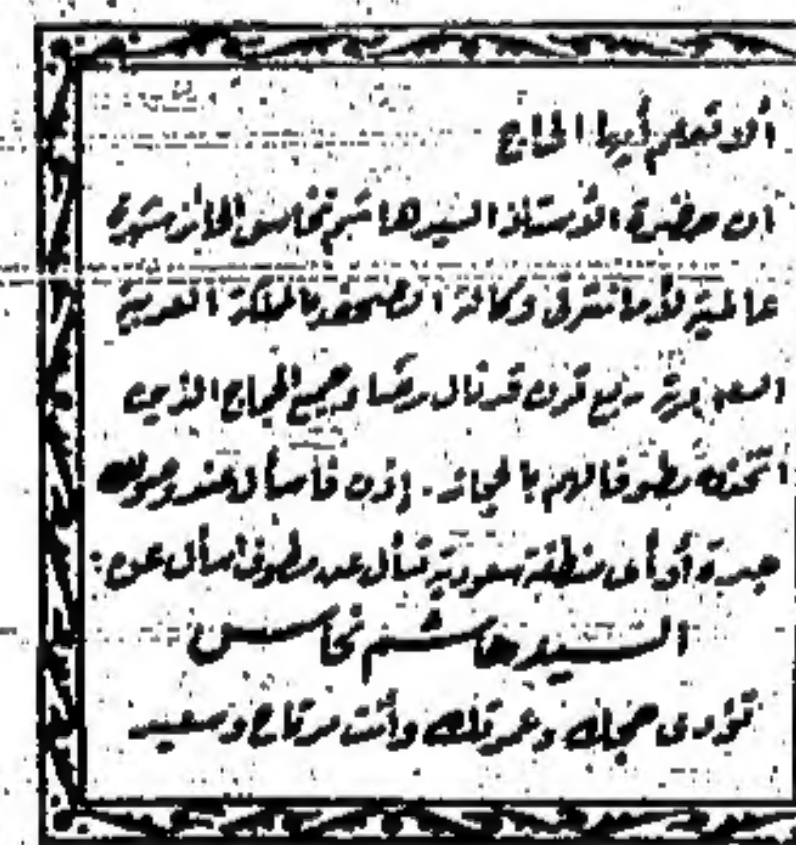 ألا تعلم أيها الحاج
أن حضرة الأستاذ السيد هاشم نحاس الحائز شهرة
عالمية لأمانته في وكالة الصحف بالمملكة العربية
السعودية ربع قرن قد نال رضا جميع الحجاج الذين
اتخذوه مطوفا لهم بالحجاز. إذن فاسأل عند وصولك
جدة أو أى منطقة سعودية تسأل عن مطوف اسأل عن:
السيد هاشم نحاس
تؤدى حجك وأنت مرتاح وسعيد